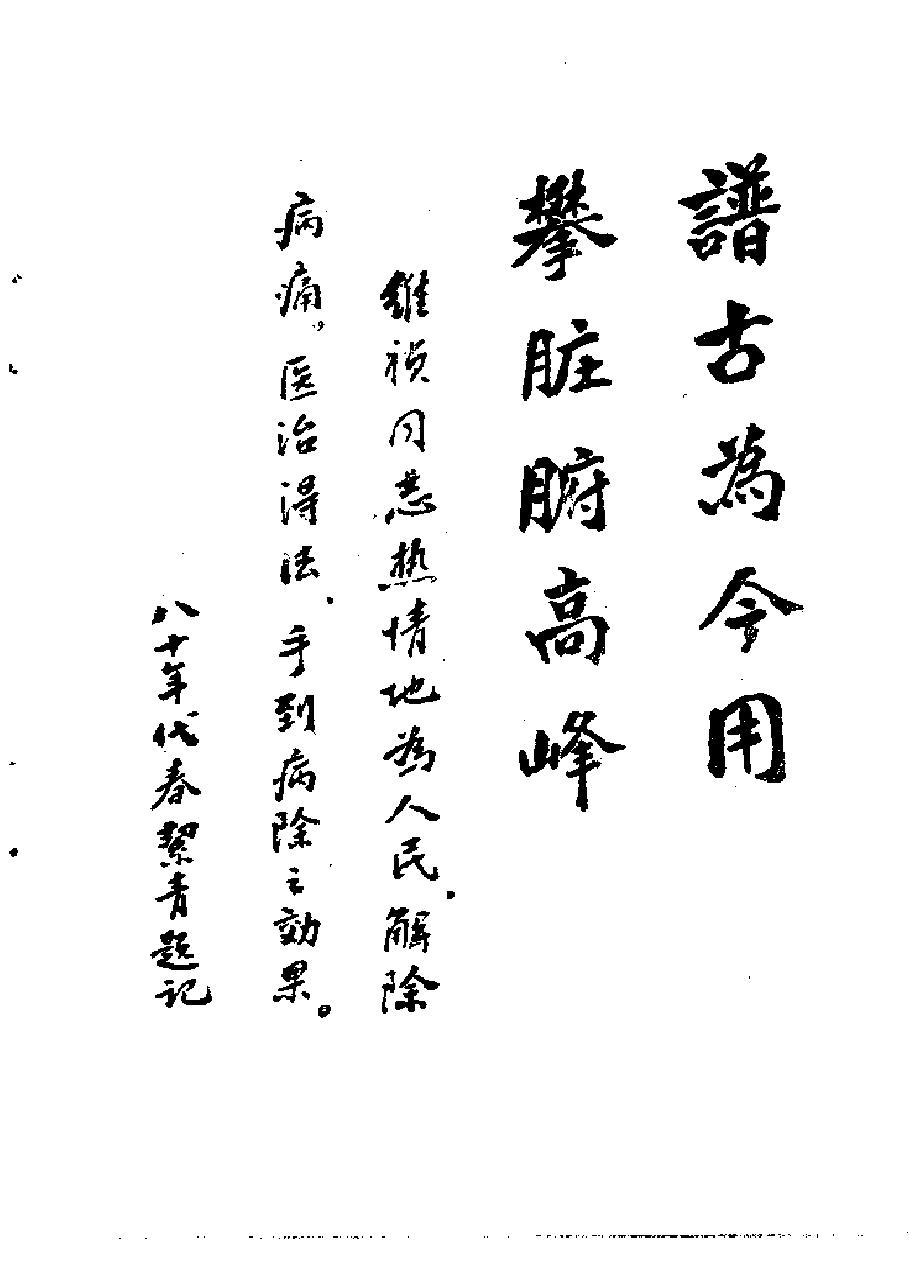 譜古為今用
攀脏腑高峰
維祯同志热情地為人民.解除
病痛，医治得法.手到病除之効果。
八十年代春絜青題记